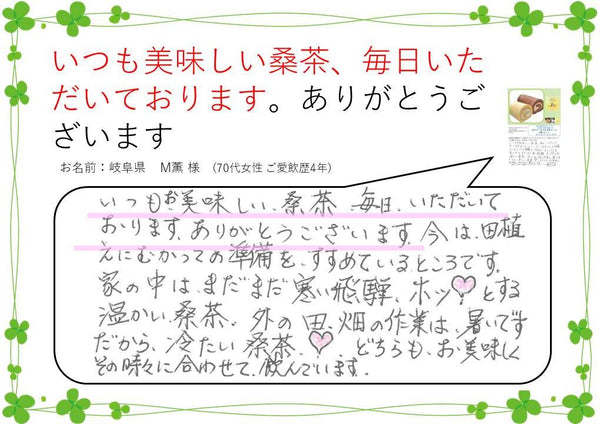 いつも美味しい桑茶、毎日いた
だいております。ありがとうご
ざいます
お名前：岐阜県　M薫 様　(70代女性 ご愛飲歴4年)
いつもお美味しい、桑茶 毎日、いただいて
おります。ありがとうございます。今は、田植
えにむかっての準備を、すすめているところです。
家の中は、まだまだ寒い飛騨、ホッ♡とする
温かい、桑茶、外の田、畑の作業は、暑いです
だから、冷たい桑茶、♡ どちらも、お美味しく
その時々に合わせて、飲んでいます。